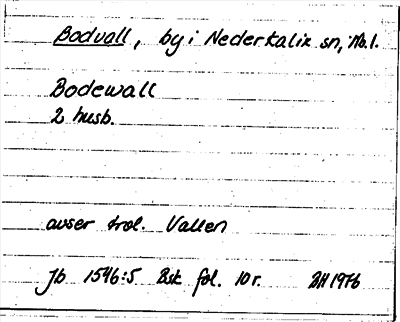 Bodvall, by i Nederkalix sn, Nb.l.
Bodewall
2 husb.
avser trol. Vallen
Jb 1546:5 Bsk fol. 10r. BH 1976